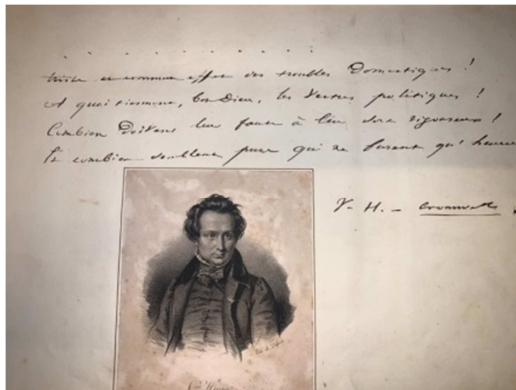 . . . . . . . . . .
triste et commun effet des troubles Domestiques !
A quoi tiennent, bon Dieu, les Vertus politiques !
Combien Doivent leur faute à leur sort rigoureux !
Et combien semblent purs qui ne furent qu'heureux
V. H. - Cromwell